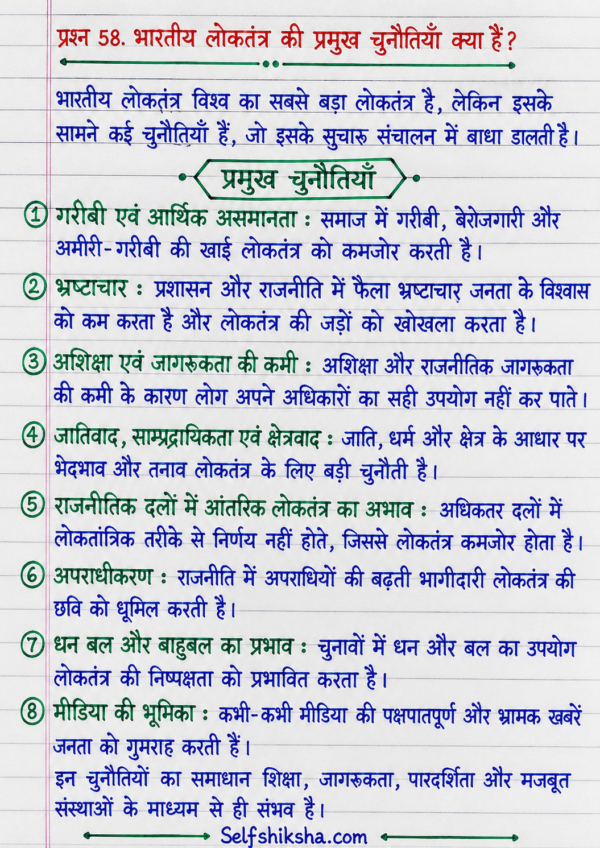 प्रश्न 58. भारतीय लोकतंत्र की प्रमुख चुनौतियाँ क्या हैं?
भारतीय लोकतंत्र विश्व का सबसे बड़ा लोकतंत्र है, लेकिन इसके
सामने कई चुनौतियाँ हैं, जो इसके सुचारू संचालन में बाधा डालती है।
प्रमुख चुनौतियाँ
① गरीबी एवं आर्थिक असमानता : समाज में गरीबी, बेरोजगारी और
अमीरी-गरीबी की खाई लोकतंत्र को कमजोर करती है।
② भ्रष्टाचार : प्रशासन और राजनीति में फैला भ्रष्टाचार जनता के विश्वास
को कम करता है और लोकतंत्र की जड़ों को खोखला करता है।
③ अशिक्षा एवं जागरूकता की कमी : अशिक्षा और राजनीतिक जागरूकता
की कमी के कारण लोग अपने अधिकारों का सही उपयोग नहीं कर पाते।
④ जातिवाद, साम्प्रदायिकता एवं क्षेत्रवाद : जाति, धर्म और क्षेत्र के आधार पर
भेदभाव और तनाव लोकतंत्र के लिए बड़ी चुनौती है।
⑤ राजनीतिक दलों में आंतरिक लोकतंत्र का अभाव : अधिकतर दलों में
लोकतांत्रिक तरीके से निर्णय नहीं होते, जिससे लोकतंत्र कमजोर होता है।
⑥ अपराधीकरण : राजनीति में अपराधियों की बढ़ती भागीदारी लोकतंत्र की
छवि को धूमिल करती है।
⑦ धन बल और बाहुबल का प्रभाव : चुनावों में धन और बल का उपयोग
लोकतंत्र की निष्पक्षता को प्रभावित करता है।
⑧ मीडिया की भूमिका : कभी-कभी मीडिया की पक्षपातपूर्ण और भ्रामक खबरें
जनता को गुमराह करती हैं।
इन चुनौतियों का समाधान शिक्षा, जागरूकता, पारदर्शिता और मजबूत
संस्थाओं के माध्यम से ही संभव है।
Selfshiksha.com